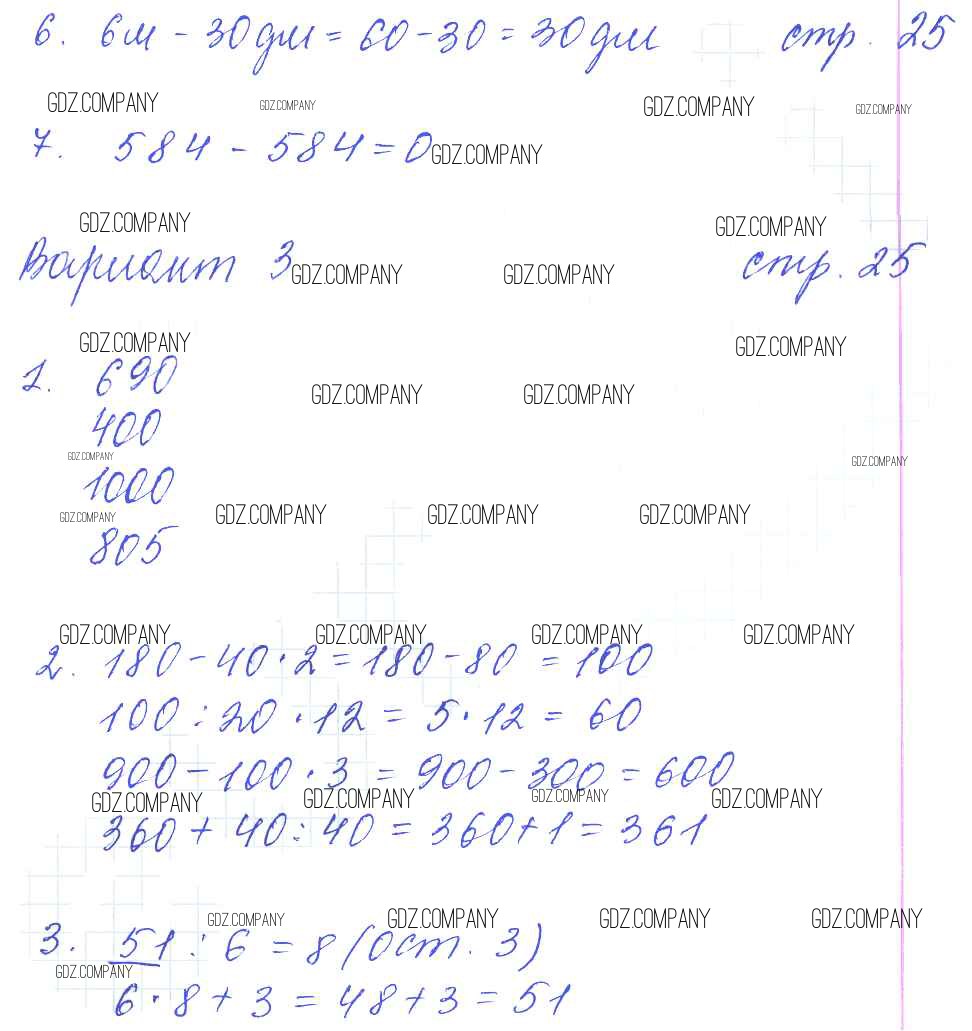 6. 6м - 30дм = 60-30 = 30дм стр. 25
GDZ.COMPANY GDZ.COMPANY GDZ.COMPANY GDZ.COMPANY
7. 584 - 584 = 0 GDZ.COMPANY
GDZ.COMPANY GDZ.COMPANY
Вариант 3 GDZ.COMPANY GDZ.COMPANY стр. 25
GDZ.COMPANY GDZ.COMPANY
1. 690
GDZ.COMPANY GDZ.COMPANY
400
GDZ.COMPANY GDZ.COMPANY
1000
GDZ.COMPANY GDZ.COMPANY GDZ.COMPANY GDZ.COMPANY
805
GDZ.COMPANY GDZ.COMPANY GDZ.COMPANY GDZ.COMPANY
2. 180 - 40 · 2 = 180 - 80 = 100
100 : 20 · 12 = 5 · 12 = 60
900 - 100 · 3 = 900 - 300 = 600
GDZ.COMPANY GDZ.COMPANY GDZ.COMPANY GDZ.COMPANY
360 + 40 : 40 = 360 + 1 = 361
GDZ.COMPANY GDZ.COMPANY GDZ.COMPANY GDZ.COMPANY
3. 51 : 6 = 8 (Ост. 3)
GDZ.COMPANY
6 · 8 + 3 = 48 + 3 = 51